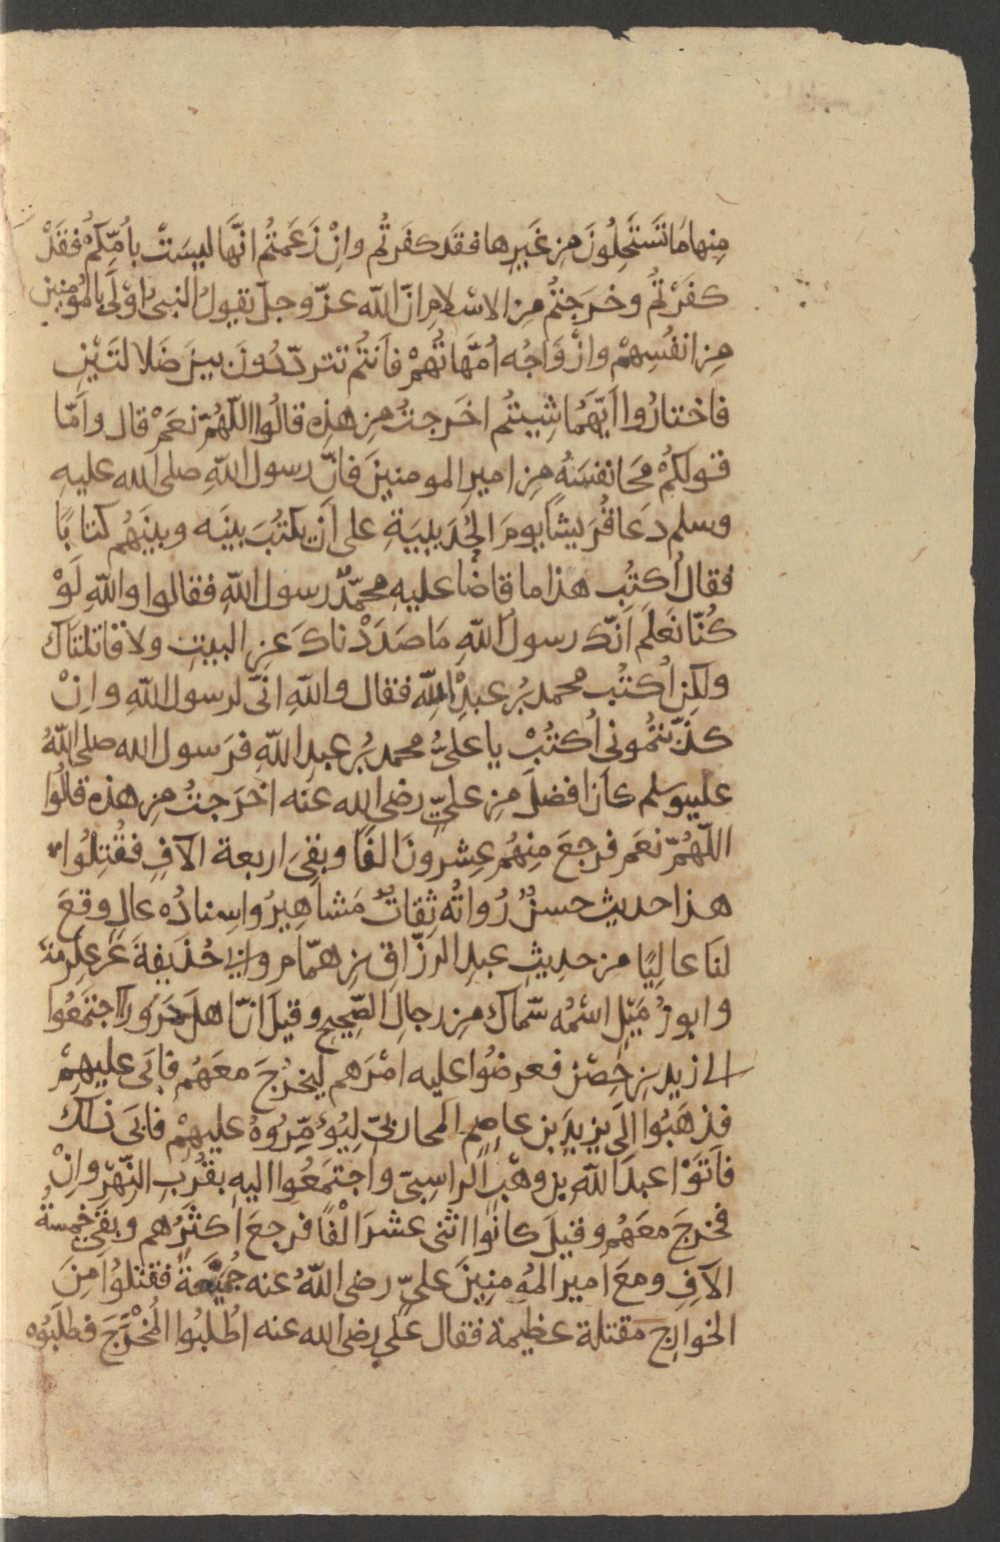 منها ما تَستَحِلُونَ مِن غَيرِها فقَد كفَرتُم وانْ زَعَمتُم انَّها ليسَتَ باُمِّكُمْ فقَدْ
كفَرْتُم وخرَجتُم مِن الاسْلامِ انّ الله عزّ وجلّ يقولُ النبىُ اوْلَى بالمُومنين
مِن انفُسِهمْ وازْوَاجُه اُمَّهاتُهُمْ فاَنتُم تتردّدُونَ بينَ ضَلالتَيْنِ
فاختارُوا ايَّهمُا شِيتُم اخَرجتُ مِن هذِهِ قالُوا اللّهُمّ نعَمْ قال وامّا
قولكُمْ مَحَا نفسَهُ مِن اميرِ المومنينَ فانّ رسولَ اللهِ صلى الله عليهِ
وسلم دَعَا قُرَيشًا يومَ الحُدَيبيَةِ على اَن يكتُبَ بينَه وبينَهُم كتابًا
فقال اُكتُب هذا ما قاضَا عليهِ محمّدٌ رسولُ اللهِ فقالوا واللهِ لَوْ
كُنّا نَعلَم اَنّكَ رسولُ اللهِ مَا صَدَدْناكَ عنِ البيتِ ولا قاتلتاك
ولكِن اُكتُب محمد بنُ عبدِ اللهِ فقال واللهِ انّى لرسولُ اللهِ وانْ
كذّبتُمونى اُكتُبْ يا علىُّ محمد بنُ عبدِ اللهِ فرَسولُ الله صلى اللهُ
عليه وسلم كاَن افضلَ مِن علىٍّ رضى الله عنه اخرَجتُ مِن هذِه قالُوا
اللّهُمّ نعَم فرجعَ منِهُم عِشرونَ الفًا وبقِىَ اربعة الآفِ فقُتِلُوا
هذا حديث حسنٌ رُواتُه ثِقاتٌ مَشاهِيرُ واسِنادُه عالٍ وقعَ
لنَا عاليًا من حديثِ عبدِ الرزّاقِ بن همّام وابى حُذَيفةَ عَن عِكرِمةَ
وابو زُمَيْلٍ اسْمُه سّماك مِن رجالِ الصّحيحِ وقيلَ انّ اهلَ حَرَورآ اجتمَعُوا
الى زيد بنِ حِصْن فعرضُوا عليه امْرَهم ليَخرُجَ معَهُم فابَى عليهِمْ
فذهَبُوا الَى يزيدَ بن عاصِمٍ المحاربىّ لِيُؤمِّرُوهُ عليهمْ فابَى ذلك
فاَتَوْا عبدَ اللهِ بن وهْبٍ الراسِبىّ واجتمَعُوا اليهِ بقُربِ النّهْرِ وانْ
فخرجَ معَهُم وقيلَ كانُوا اثنى عشرَ الْفًا فرجعَ اكثَرُهم وبقِىَ خمسةُ
الآفِ ومعَ اميرِ المُومِنينَ علىٍّ رضى اللهُ عنه جُمَيّعَةٌ فقتلُوا مِنَ
الخوارِج مقتلة عظيمة فقال على رضى الله عنه اطُلبُوا المُخْدَجَ فطلَبُوه